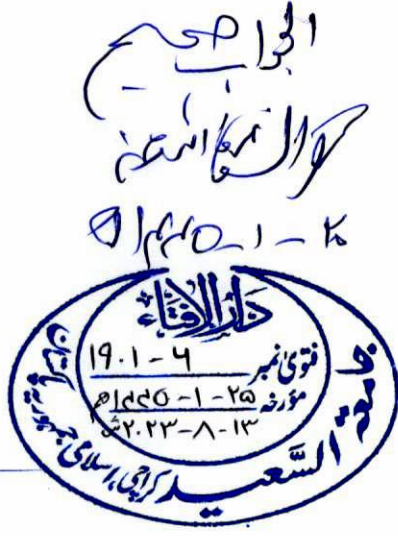 الجواب صحیح
۱۴۴۵-۱-۲۵ھ
دَارُالاِفتَاء
فتویٰ نمبر 19.1-4
مؤرخہ ۲۵-۱-۱۴۴۵ھ
۱۳-۸-۲۰۲۳ء
جامعة السَّعيد کراچی، اسلامی جمہوریہ پاکستان